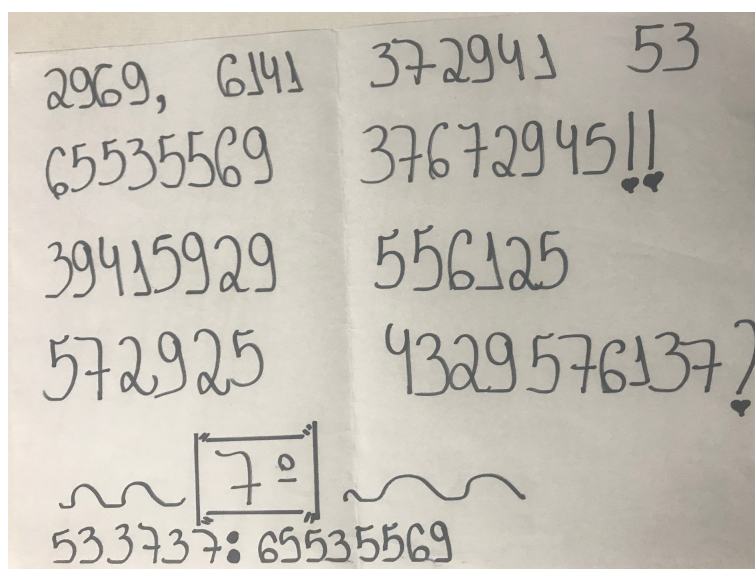 2969, 6141 372941 53
65535569 37672945!!
39415929 556125
572925 4329576137?
7º
533737: 65535569